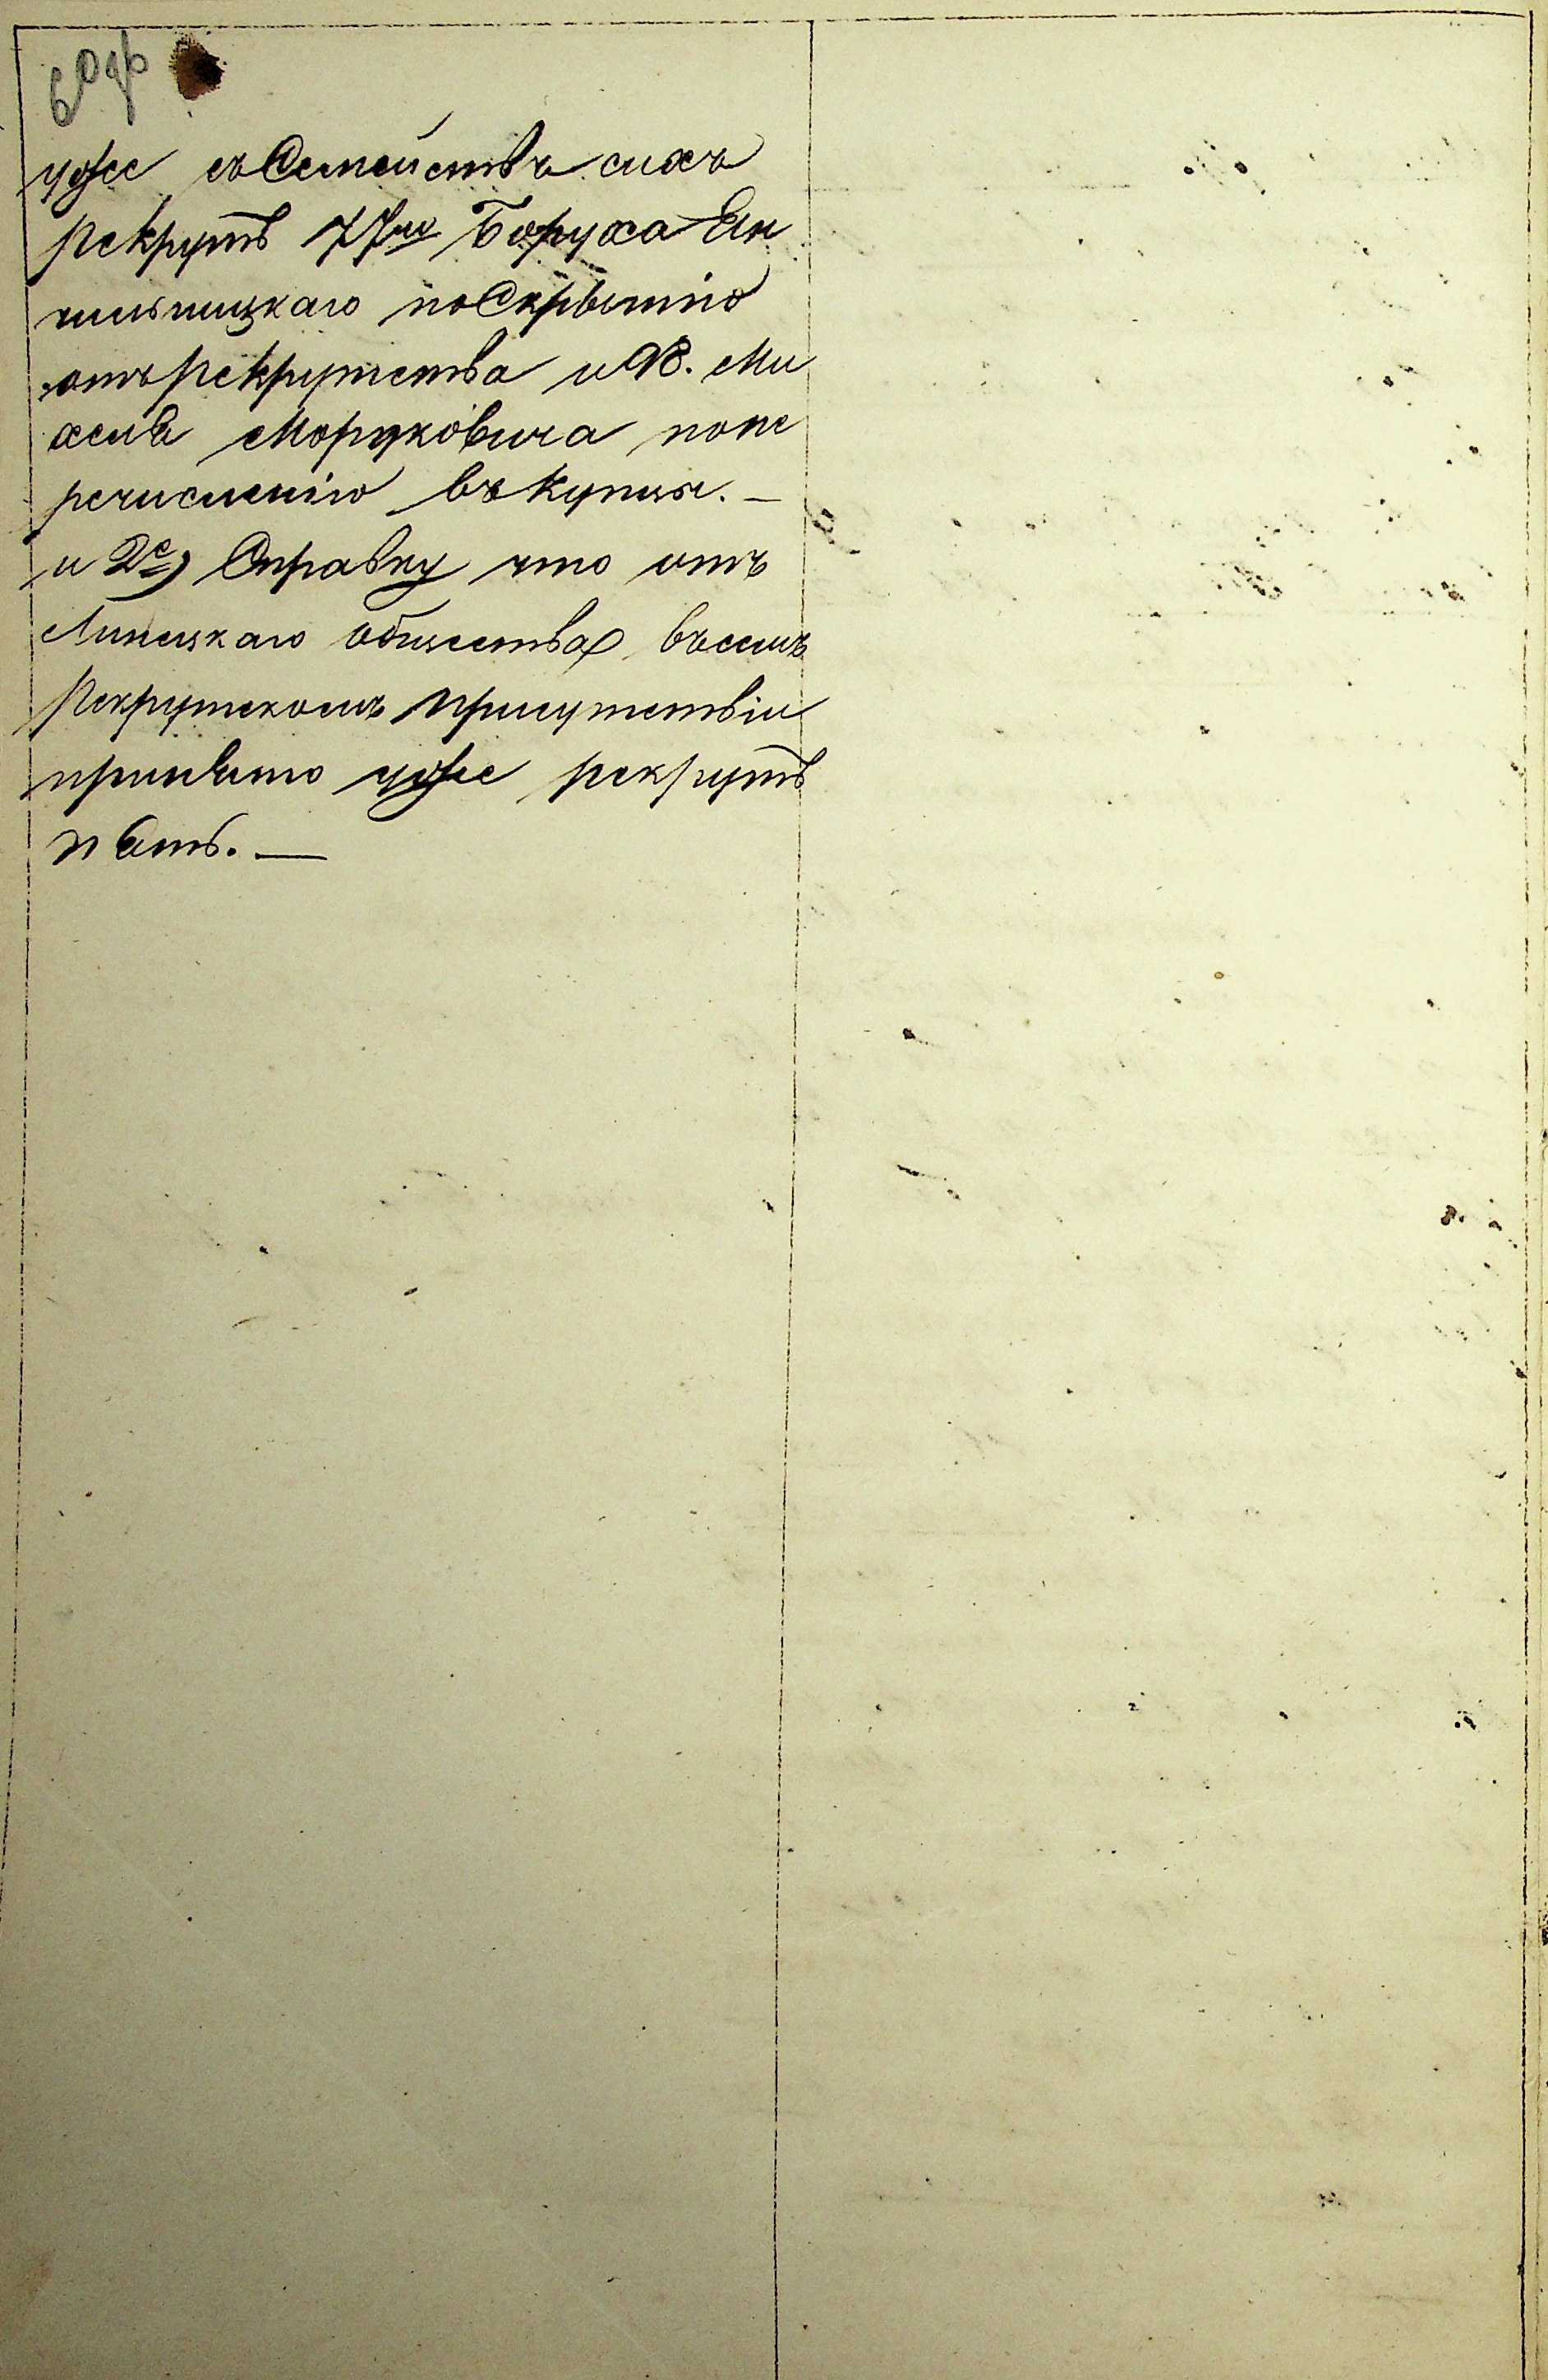 60об
уже съ Семействъ сихъ
рекрутъ 77го Боруха Ян
кильницкаго по Скрытію
отъ рекрутства и 78. Ми
хеля Мордковича попе
речисленію въ купцы. —
и 2е) Справку что отъ
Липецкаго общества въ семъ
Рекрутскомъ присутствіи
принято уже рекрутъ
пять. —